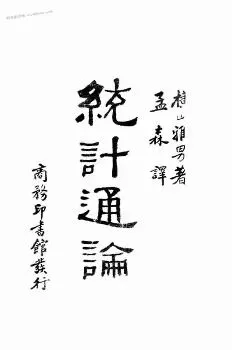 橫山雅男著
孟森譯
統計通論
商務印書館發行